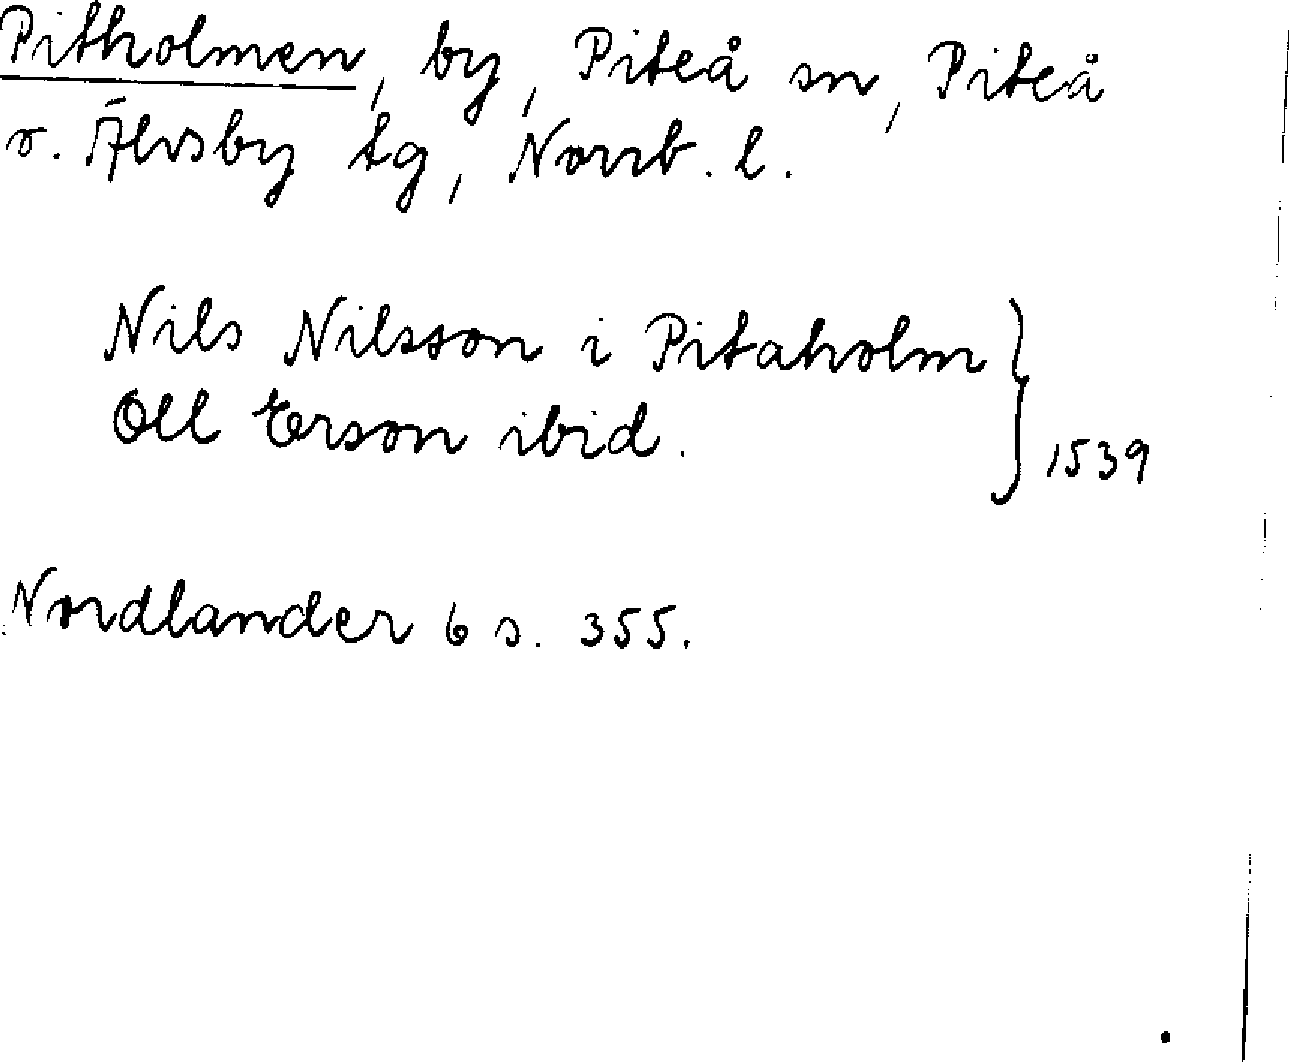 Pitholmen, by, Piteå sn, Piteå
o. Älvsby tg, Norrb. l.
Nils Nilsson i Pitaholm
Oll Erson ibid. } 1539
Nordlander 6 s. 355.